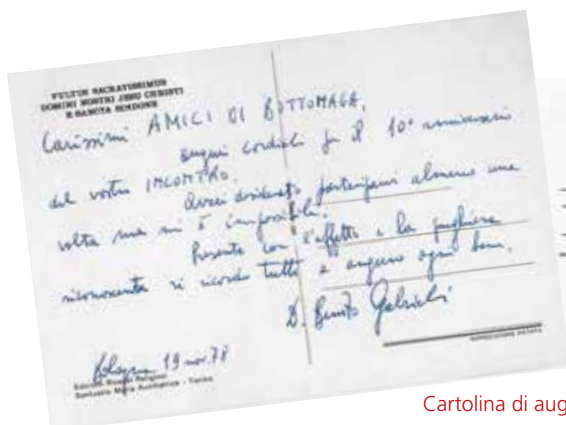 VULTUS SACRATISSIMUS
DOMINI NOSTRI JESU CHRISTI
E SANCTA SINDONE
Carissimi AMICI DI BOTTONAGA,
auguri cordiali per il 10° anniversario
del vostro INCONTRO.
Avrei desiderato partecipare almeno una
volta ma mi è impossibile.
Presente con l'affetto e la preghiera
riconoscente vi ricordo tutti e auguro ogni bene.
D. Benito Gabrieli
Bologna 19 nov. 78
Santuario Maria Ausiliatrice - Torino
RIPRODUZIONE VIETATA
Cartolina di aug